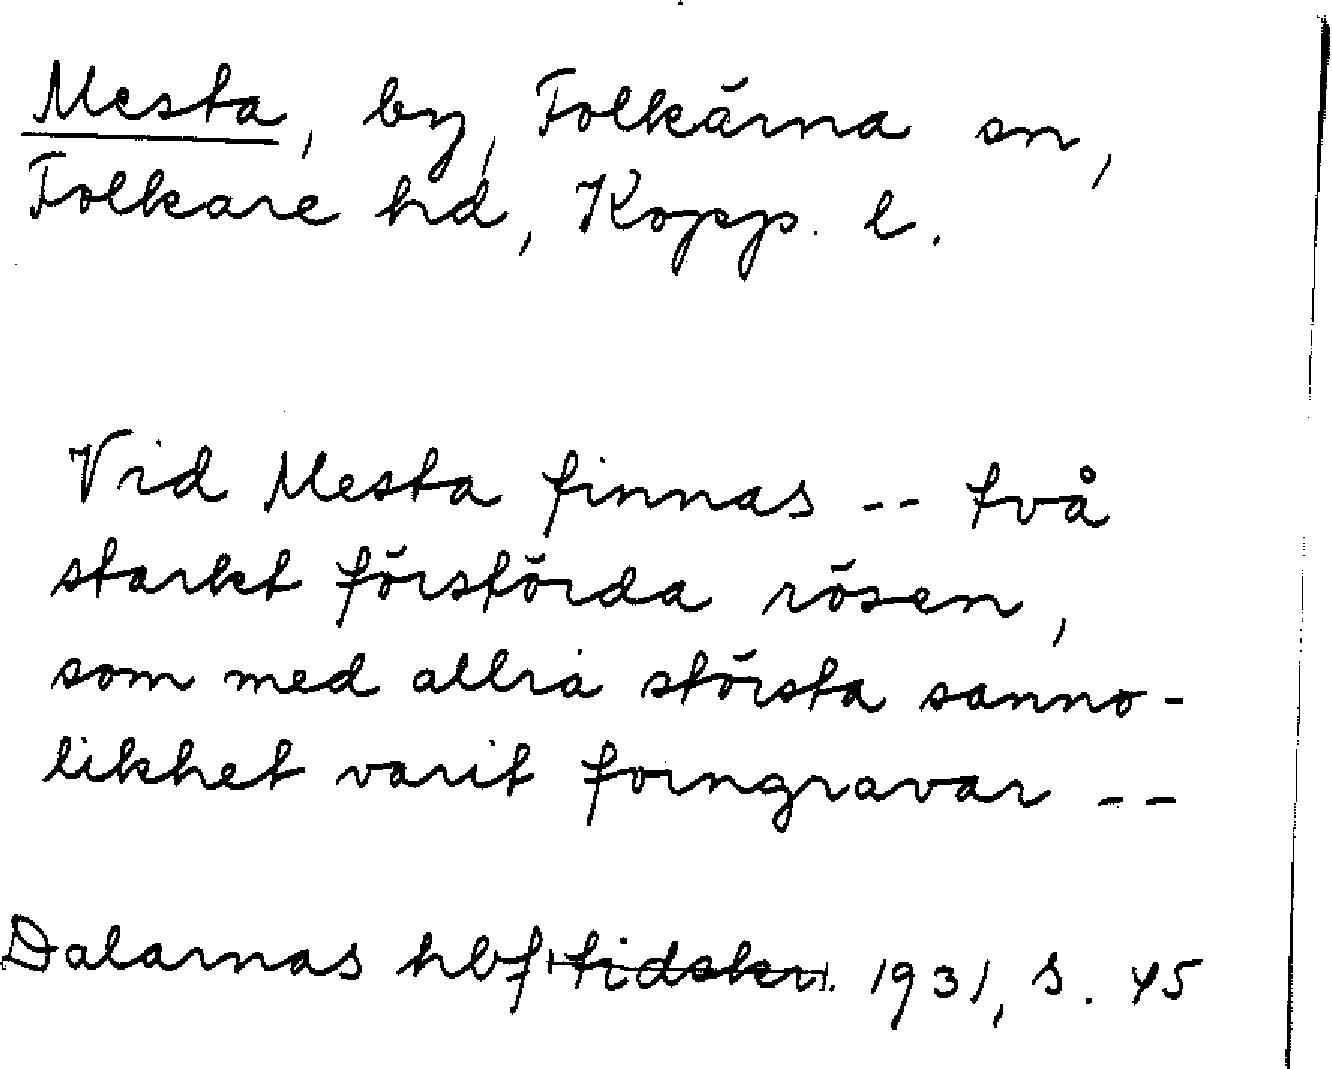 Mesta, by, Folkärna sn,
Folkare hd, Kopp. l.
Vid Mesta finnas -- två
starkt förstörda rösen,
som med allra största sanno-
likhet varit forngravar --
Dalarnas hbf tidskr. 1931, s. 45